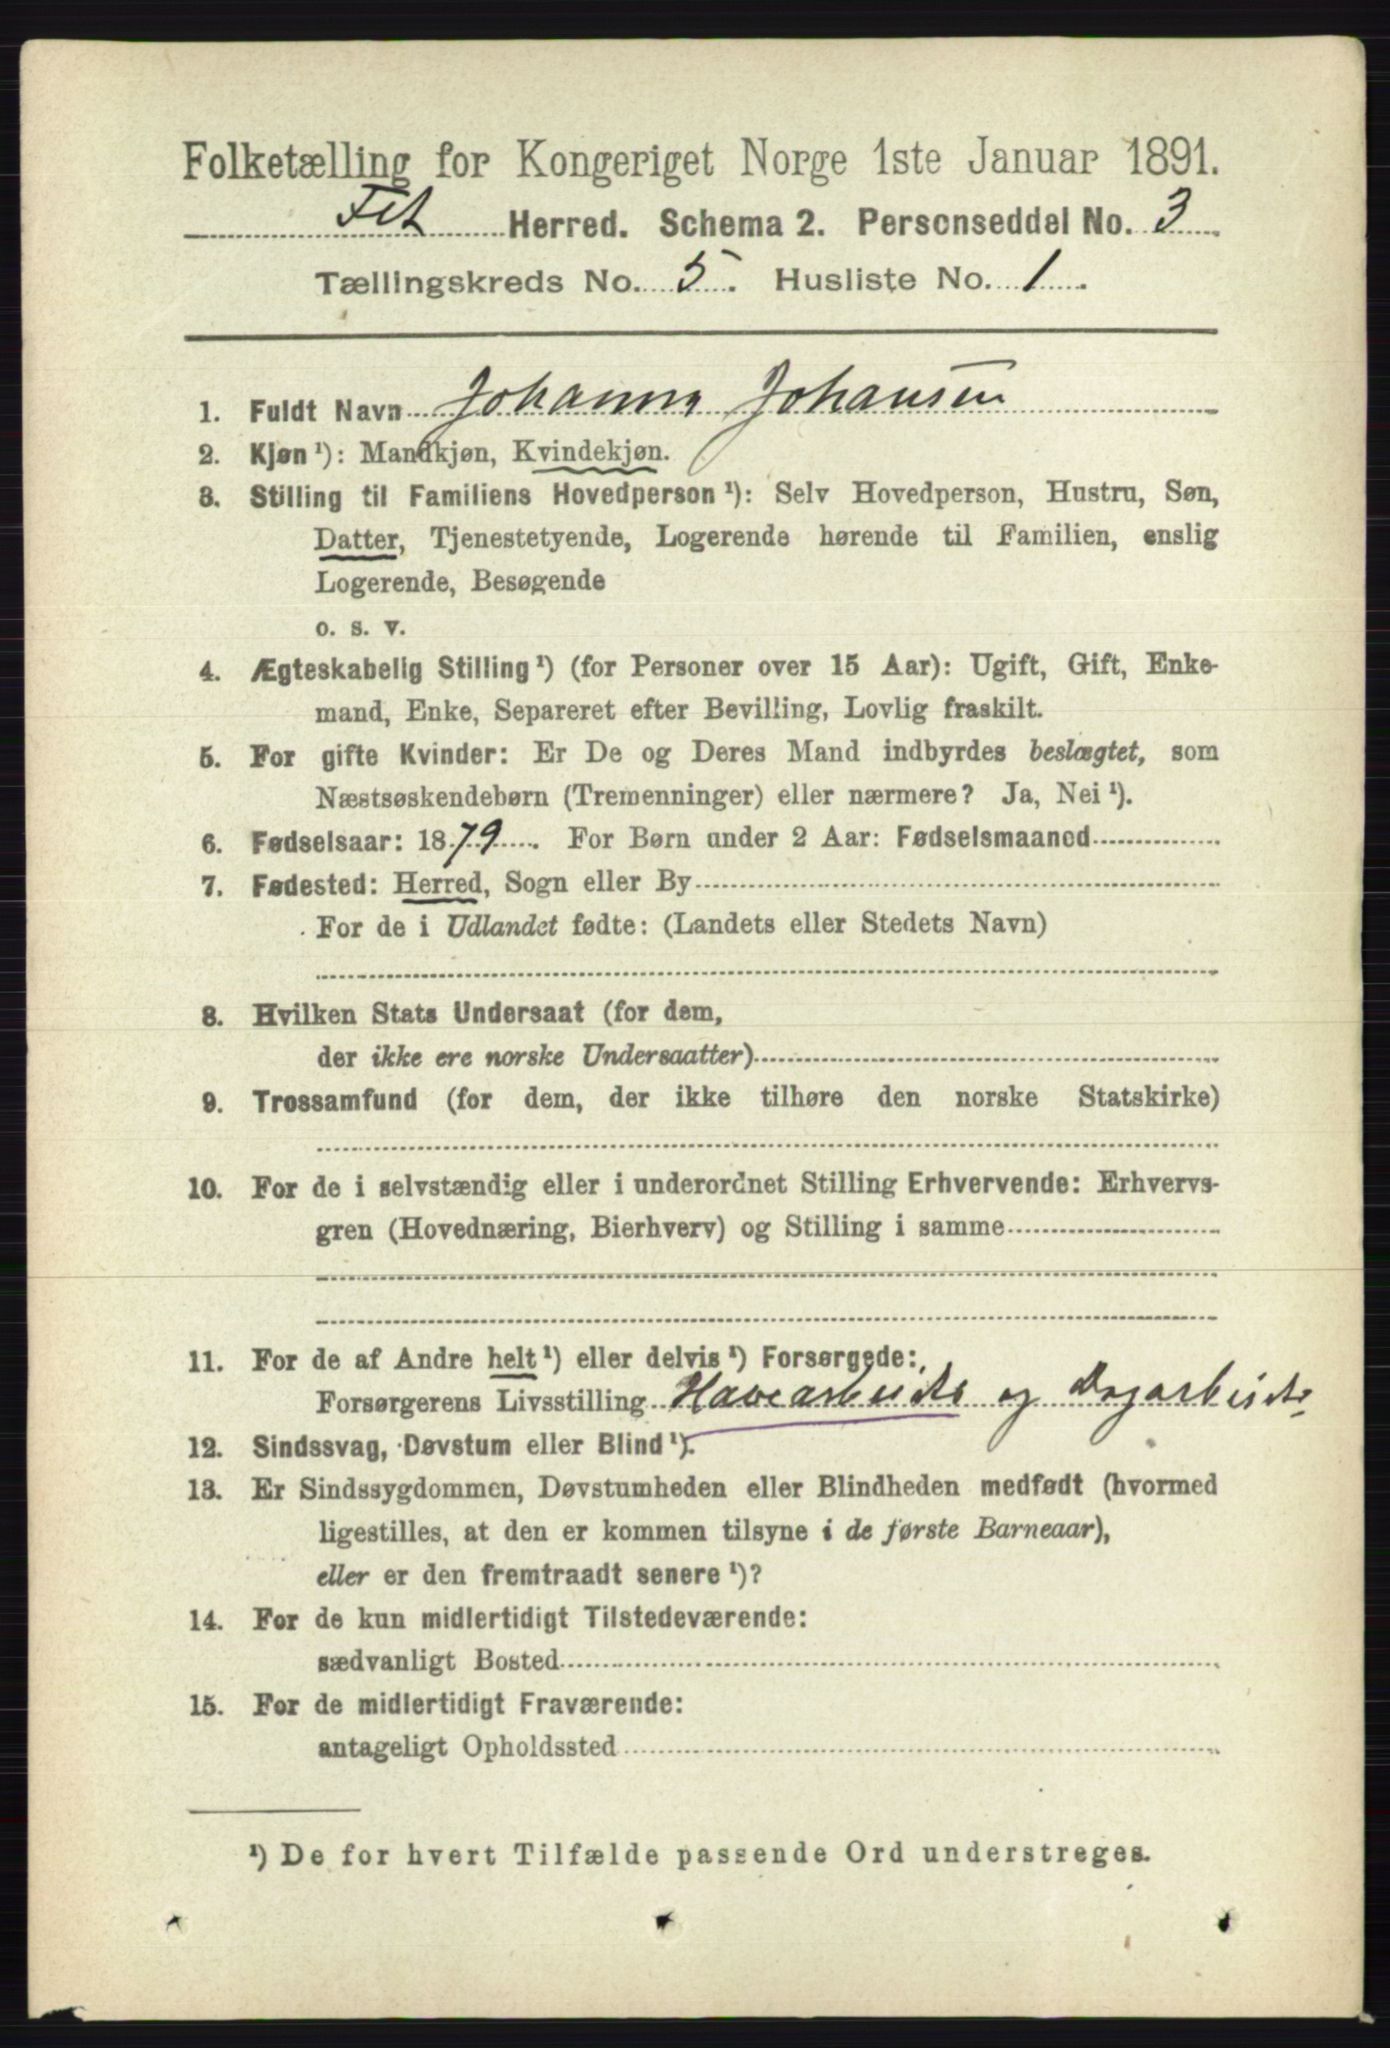 Folketælling for Kongeriget Norge 1ste Januar 1891.
Fet Herred. Schema 2. Personseddel No. 3
Tællingskreds No. 5. Husliste No. 1.
1. Fuldt Navn Johanna Johansen
2. Kjøn ¹): Mandkjøn, Kvindekjøn.
3. Stilling til Familiens Hovedperson ¹): Selv Hovedperson, Hustru, Søn,
Datter, Tjenestetyende, Logerende hørende til Familien, enslig
Logerende, Besøgende
o. s. v.
4. Ægteskabelig Stilling ¹) (for Personer over 15 Aar): Ugift, Gift, Enke-
mand, Enke, Separeret efter Bevilling, Lovlig fraskilt.
5. For gifte Kvinder: Er De og Deres Mand indbyrdes beslægtet, som
Næstsøskendebørn (Tremenninger) eller nærmere? Ja, Nei ¹).
6. Fødselsaar: 1879. For Børn under 2 Aar: Fødselsmaaned
7. Fødested: Herred, Sogn eller By
For de i Udlandet fødte: (Landets eller Stedets Navn)
8. Hvilken Stats Undersaat (for dem,
der ikke ere norske Undersaatter)
9. Trossamfund (for dem, der ikke tilhøre den norske Statskirke)
10. For de i selvstændig eller i underordnet Stilling Erhvervende: Erhvervs-
gren (Hovednæring, Bierhverv) og Stilling i samme
11. For de af Andre helt ¹) eller delvis ¹) Forsørgede:
Forsørgerens Livsstilling Havearbeider og Dagarbeider
12. Sindssvag, Døvstum eller Blind ¹).
13. Er Sindssygdommen, Døvstumheden eller Blindheden medfødt (hvormed
ligestilles, at den er kommen tilsyne i de første Barneaar),
eller er den fremtraadt senere ¹)?
14. For de kun midlertidigt Tilstedeværende:
sædvanligt Bosted
15. For de midlertidigt Fraværende:
antageligt Opholdssted
¹) De for hvert Tilfælde passende Ord understreges.